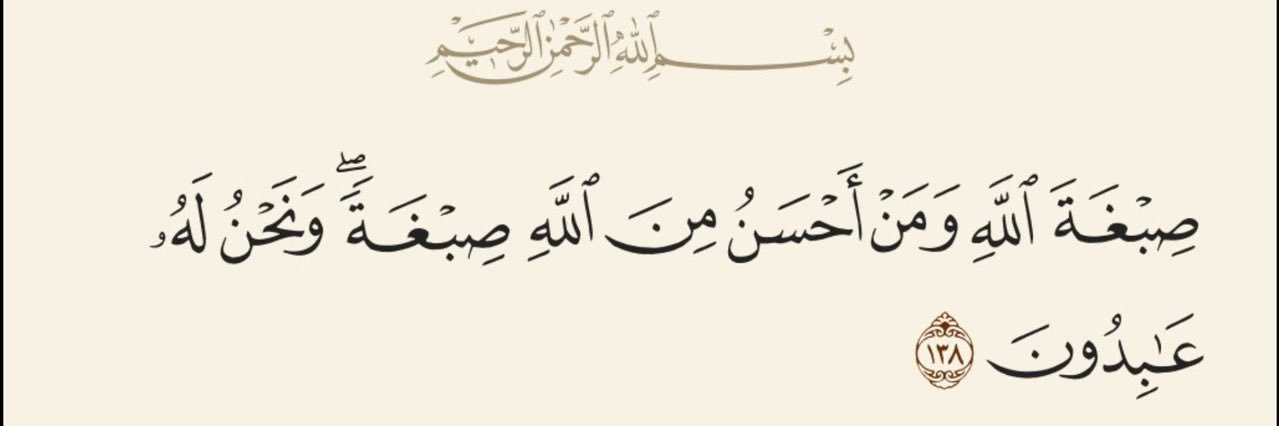 بِسْمِ ٱللَّهِ ٱلرَّحْمَٰنِ ٱلرَّحِيمِ
صِبْغَةَ ٱللَّهِ وَمَنْ أَحْسَنُ مِنَ ٱللَّهِ صِبْغَةًۖ وَنَحْنُ لَهُۥ
عَٰبِدُونَ ١٣٨